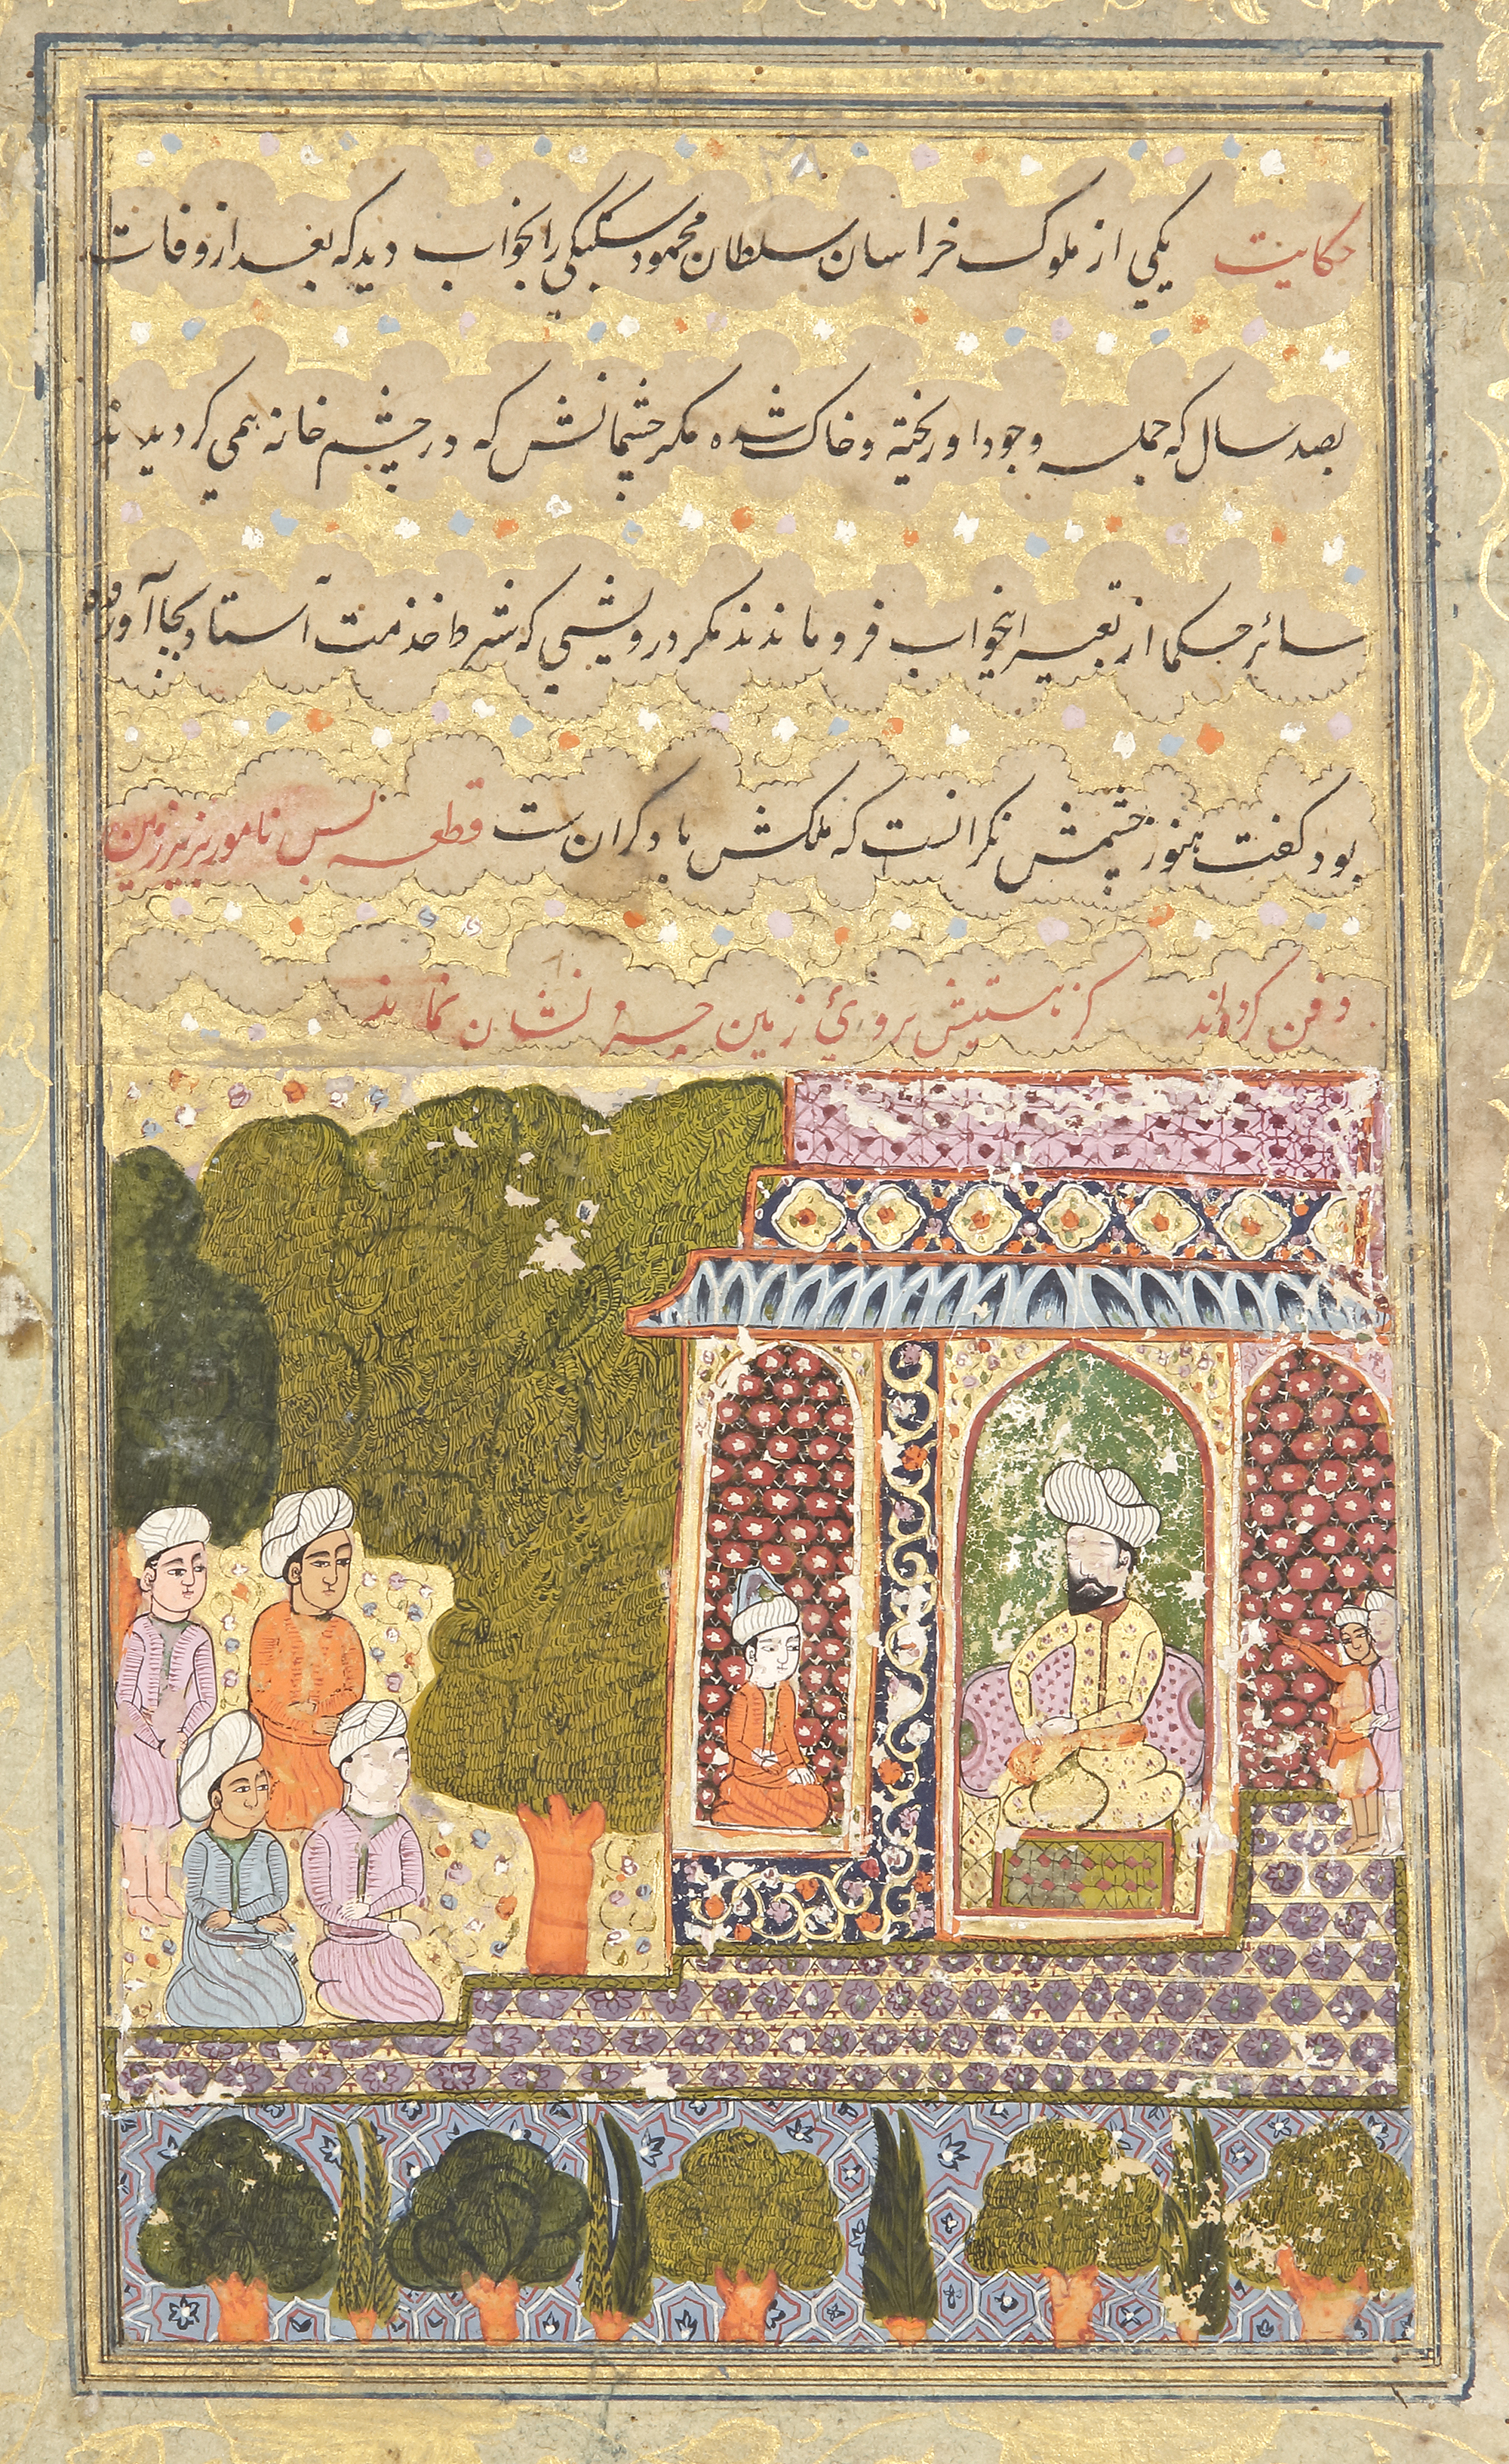 حکایت یکی از ملوک خراسان سلطان محمود سبکتکین را بخواب دید که بعد از وفات
بصد سال که جمله وجود او ریخته و خاک شده مکر چشمانش که در چشم خانه همی کردیدند
سائر حکما از تعبیر اینخواب فرو ماندند مکر درویشی که شرط خدمت آستاد بجا آورده
بود کفت هنوز چشمش نکرانست که ملکش با دکران ست قطعه بس نامور بزیر زمین
دفن کرده‌اند کز هستیش بروئ زمین بر نشان نماند